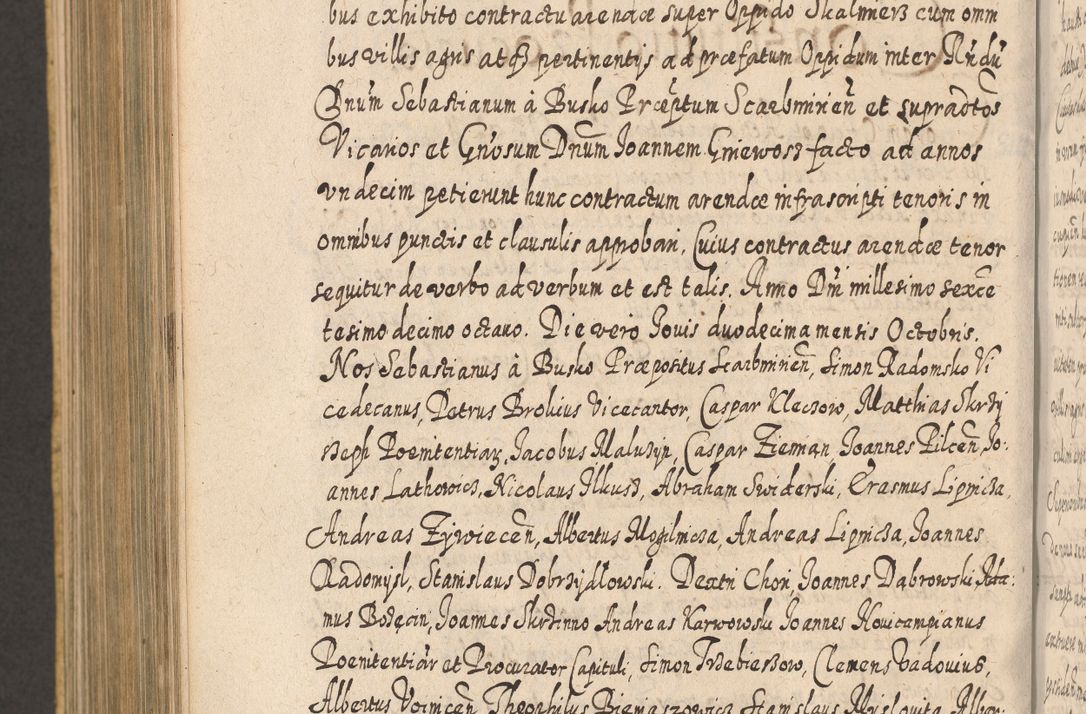 bus exhibito contractu arendæ super Oppido Skalmierz cum omni
bus villis agris atq3 pertinentijs ad præfatum Oppidum inter Rñdũ
Dnũm Sebastianum à Busko Præptum Scarbminẽn et supradtos
Vicarios et Gñosum Dnũm Joannem Gniewosz facto ad annos
vndecim petierunt hunc contractum arendæ infrascripti tenoris in
omnibus punctis et clausulis approbari. Cuius contractus arendæ tenor
sequitur de verbo ad verbum et est talis. Anno Dñi millesimo sexcẽ
tesimo decimo octauo. Die vero Jouis duodecima mensis Octobris.
Nos Sebastianus à Busko Præpositus Scarbmiriẽn, Simon Radomsko Vi
cedecanus, Petrus Brolius Vicecantor, Caspar Kleczow, Matthias Skrzy
szeph Poenitentiarӡ, Jacobus Maluzyn, Caspar Zieman Joannes Pilcẽn, Jo:
annes Lathowicz, Nicolaus Ilkusz, Abraham Swiderski, Erasmus Lipnicza,
Andreas Zywiecẽn, Albertus Mogilnicza, Andreas Lipnicza, Joannes
Radomysl, Stanislaus Dobrzydłowski. Dextri Chori, Joannes Dabrowski, Ada:
mus Bozęcin, Joannes Skrzinno Andreas Karwowski Joannes Nouicampianus
Poenitentiãr et Procurator Capituli, Simon Trzebieszow, Clemens Vadouius,
Albertus Voinicẽn Theophilus Biernaszowicz Stanislaus Myslovita Alber: